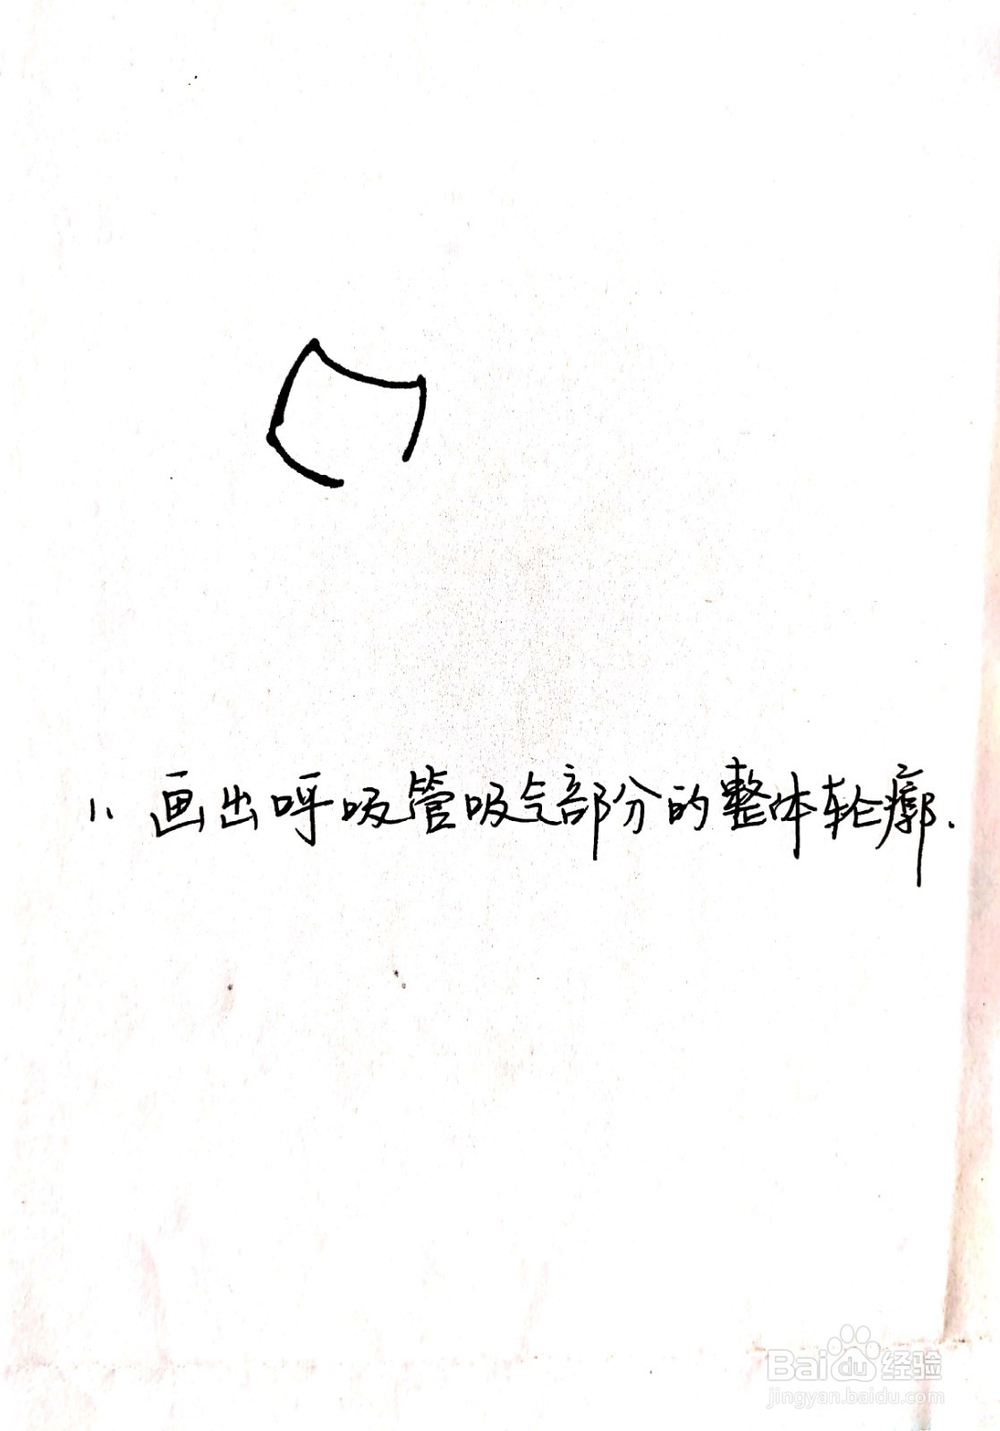 1、画出呼吸管吸气部分的整体轮廓.
Baidu经验
jingyan.baidu.com